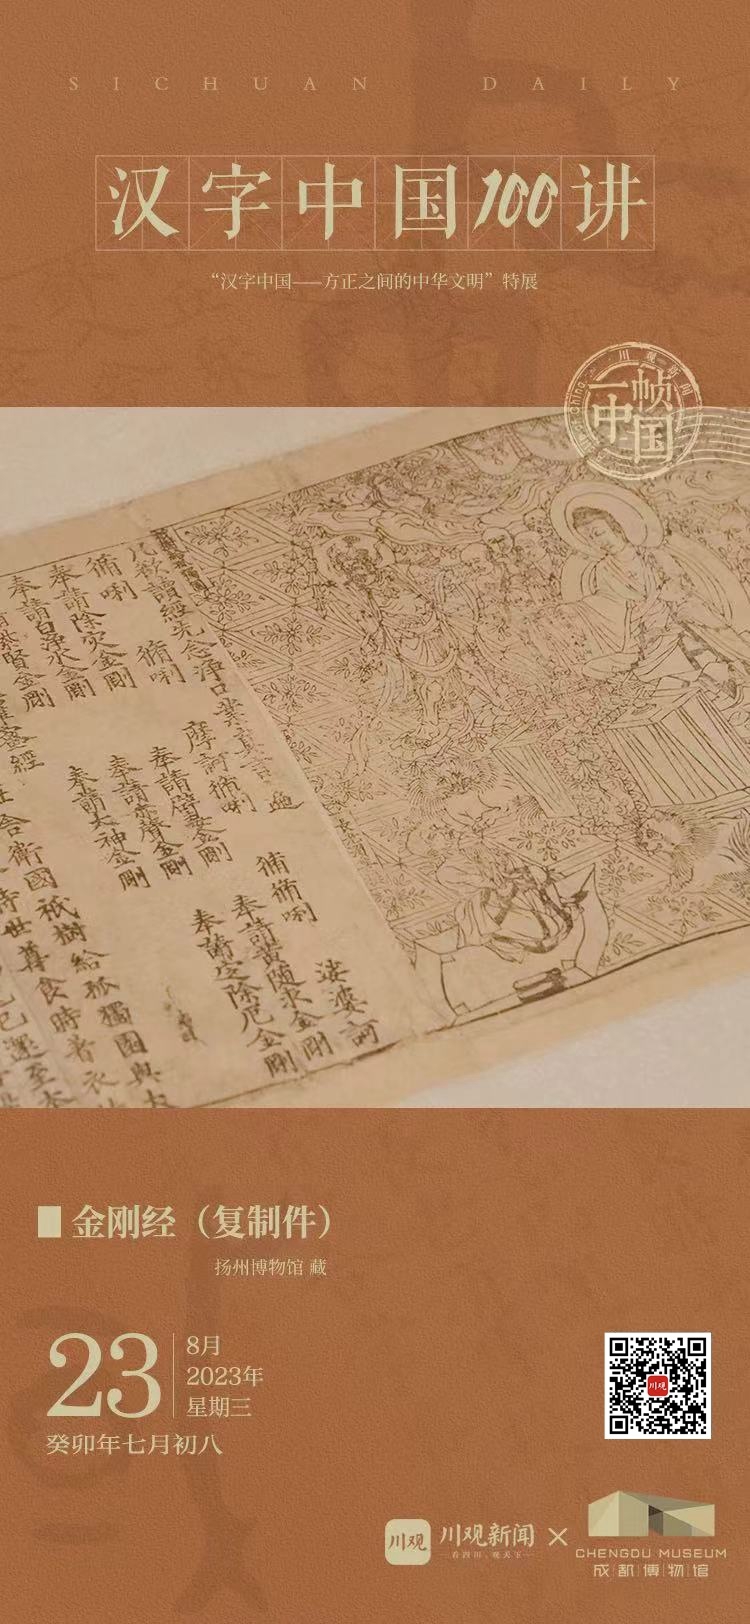 SICHUAN DAILY
汉字中国100讲
“汉字中国——方正之间的中华文明”特展
川观新闻
一帧
中国
凡欲讀經先念淨口業真言遍
脩唎 脩唎 摩訶脩唎 脩脩唎 娑婆訶
奉請除灾金剛 奉請辟毒金剛 奉請黄随求金剛
奉請白淨水金剛 奉請赤聲金剛 奉請定除厄金剛
奉請大神金剛
舍衛國祇樹給孤獨園與
世尊食時著衣
金刚经（复制件）
扬州博物馆 藏
23
8月
2023年
星期三
癸卯年七月初八
川观
川观新闻
看四川，观天下
×
CHENGDU MUSEUM
成都博物馆
川观